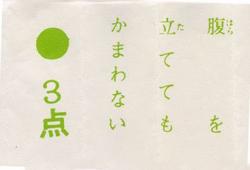 腹を
立てても
かまわない
3点